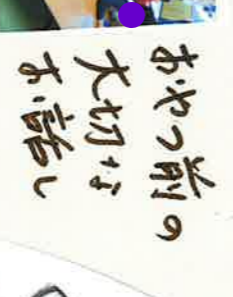 おやつ前の
大切な
お話し